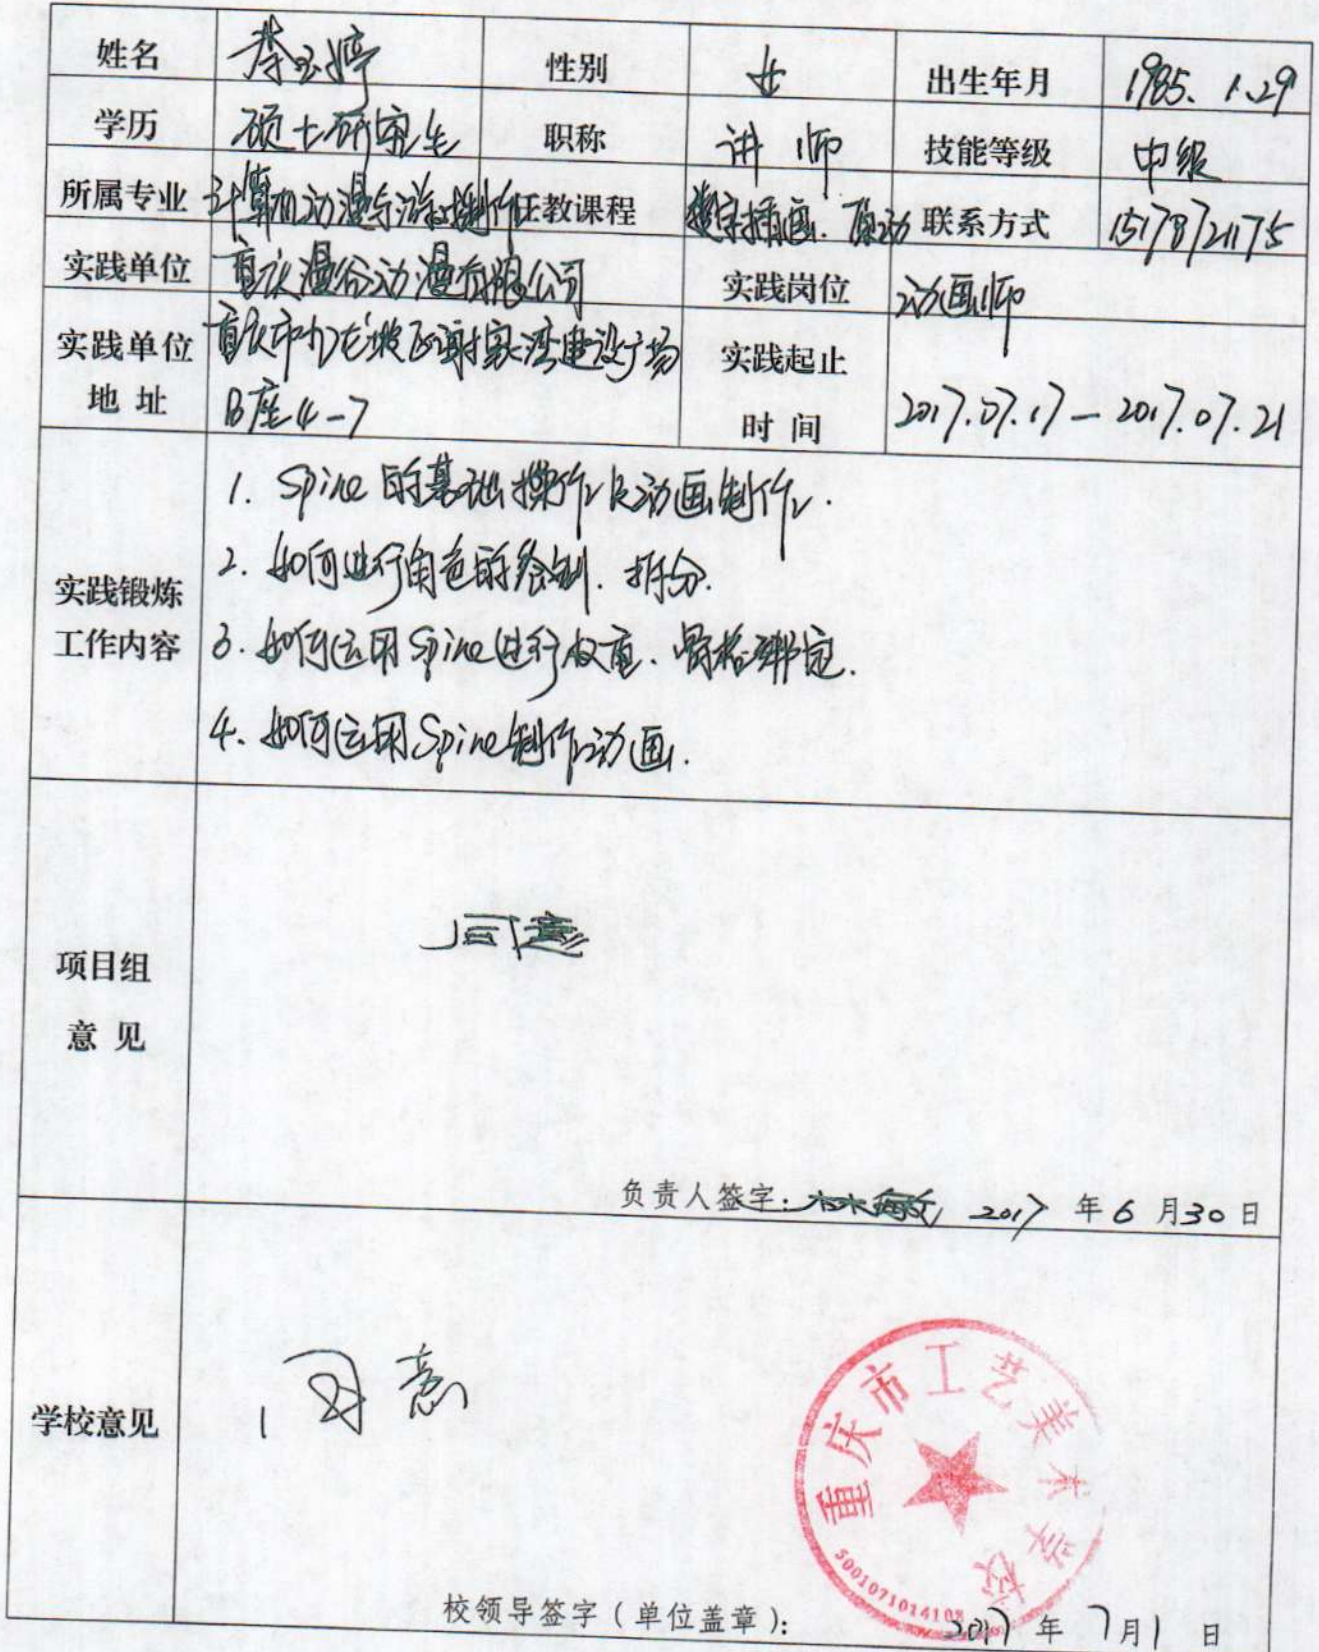 姓名 李玉婷 性别 女 出生年月 1985. 1.29
学历 硕士研究生 职称 讲师 技能等级 中级
所属专业 计算机动漫与游戏制作 任教课程 数字插画. 原动 联系方式 15178721175
实践单位 重庆漫谷动漫有限公司 实践岗位 动画师
实践单位 重庆市九龙坡区谢家湾建设广场 实践起止
地 址 B座4-7 时 间 2017.07.17-2017.07.21
1. Spine的基础操作及动画制作.
2. 如何进行角色的绘制. 拆分.
实践锻炼
工作内容
3. 如何运用Spine进行权重. 骨格绑定.
4. 如何运用Spine制作动画.
同意
项目组
意 见
负责人签字: 2017 年 6 月 30 日
同意
学校意见
重庆市工艺美术学校
校领导签字（单位盖章）: 2017 年 7 月 1 日